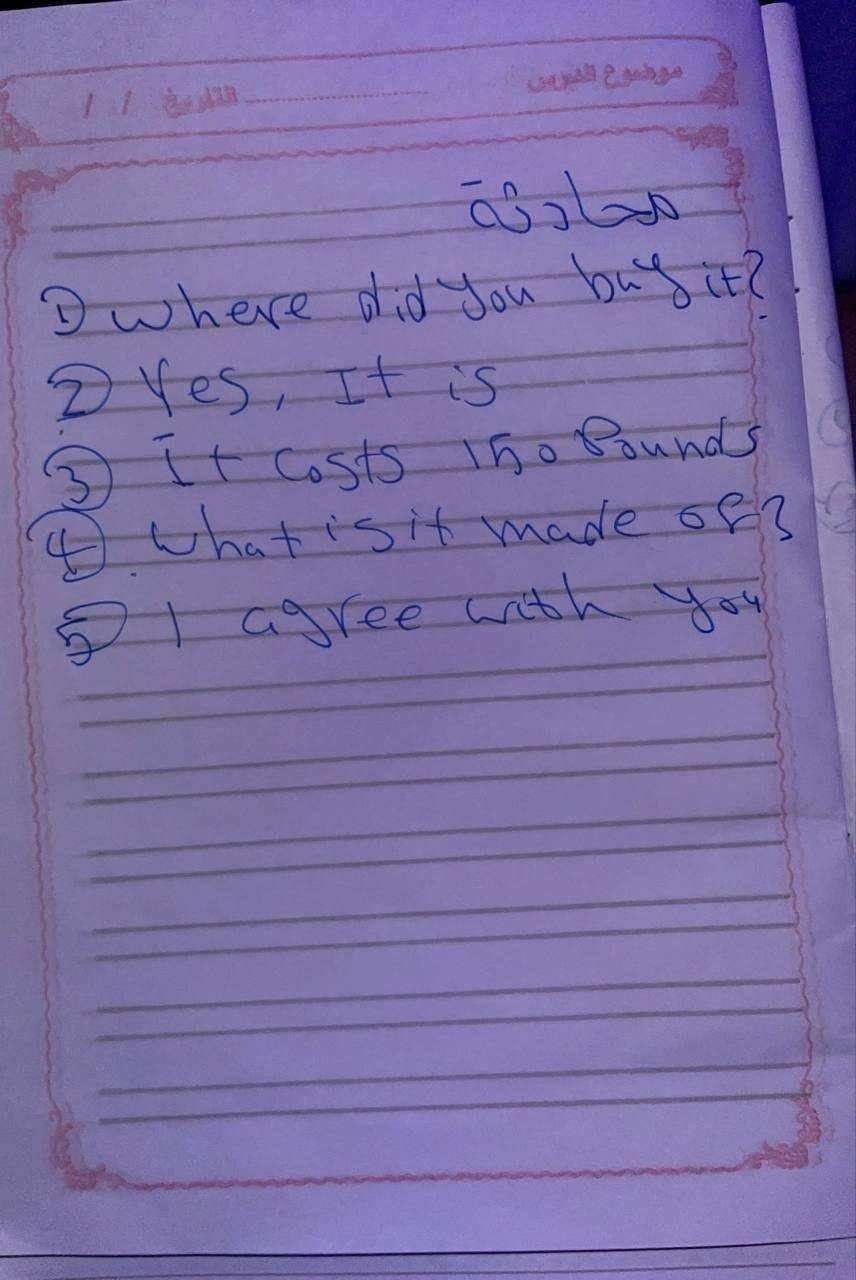 موضوع الدرس التاريخ / /
محادثة
1) where did you buy it?
2) Yes, It is
3) It costs 150 Pounds
4) what is it made of?
5) I agree with you